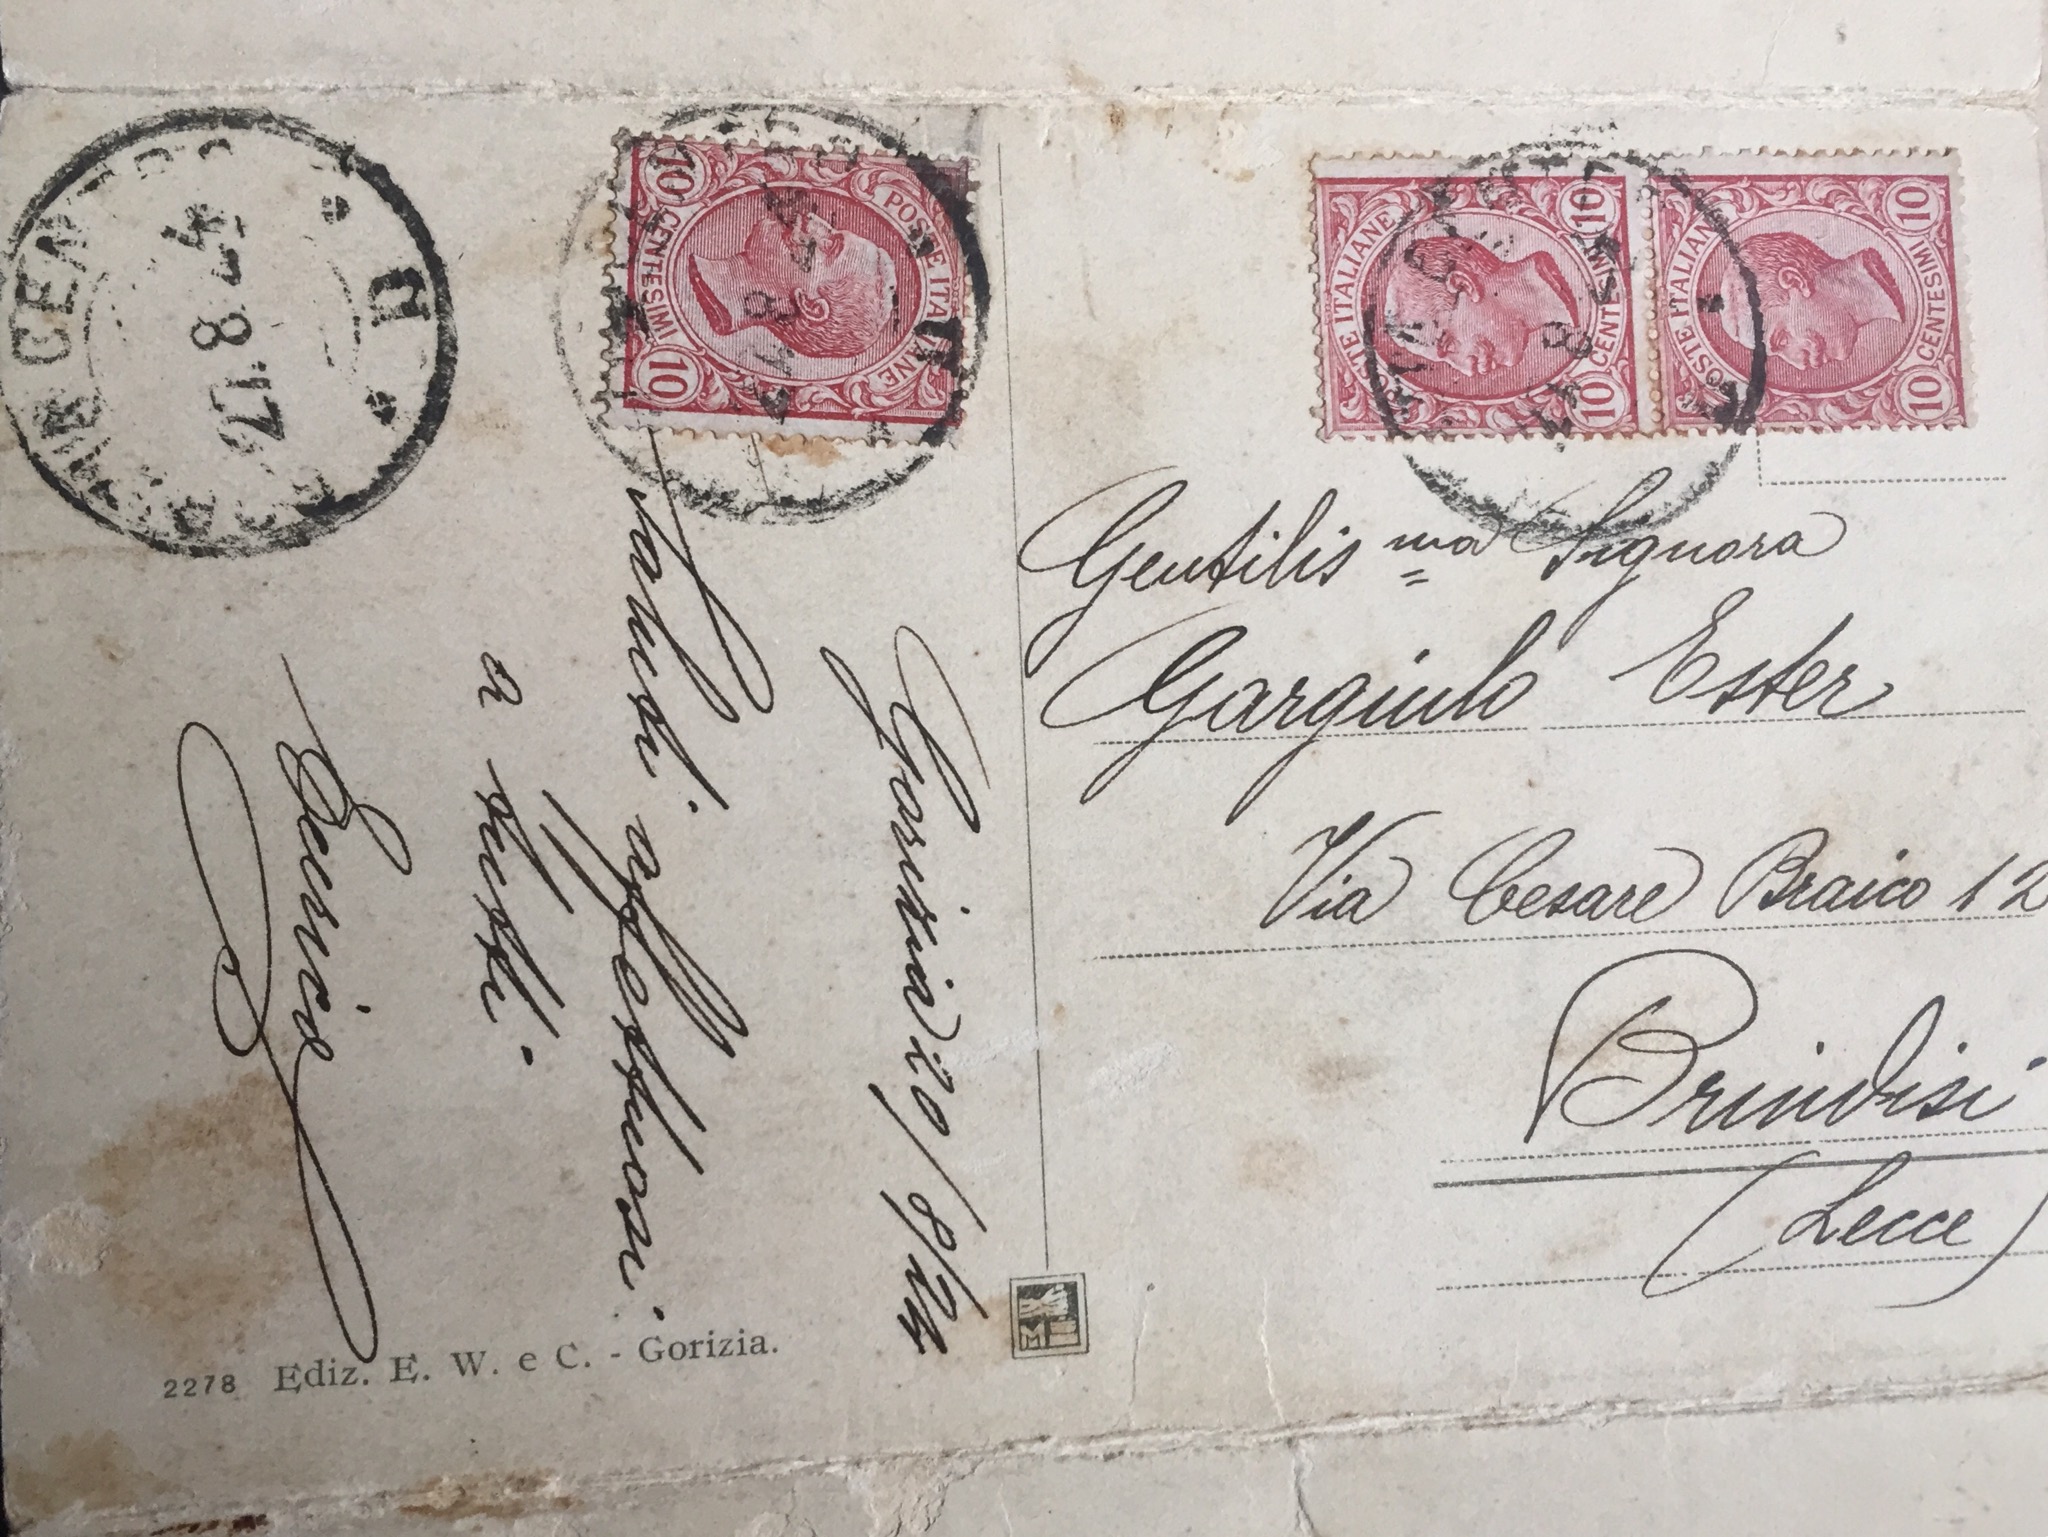 Gorizia 20/8/24
saluti affettuosi
a tutti.
2278 Ediz. E. W. e C. - Gorizia.
10 CENTESIMI 10
POSTE ITALIANE
POSTE ITALIANE
10 CENTESIMI 10
POSTE ITALIANE
10 CENTESIMI 10
Gentilis ma Signora
Gargiulo Ester
Via Cesare Braico 12
Brindisi
(Lecce)